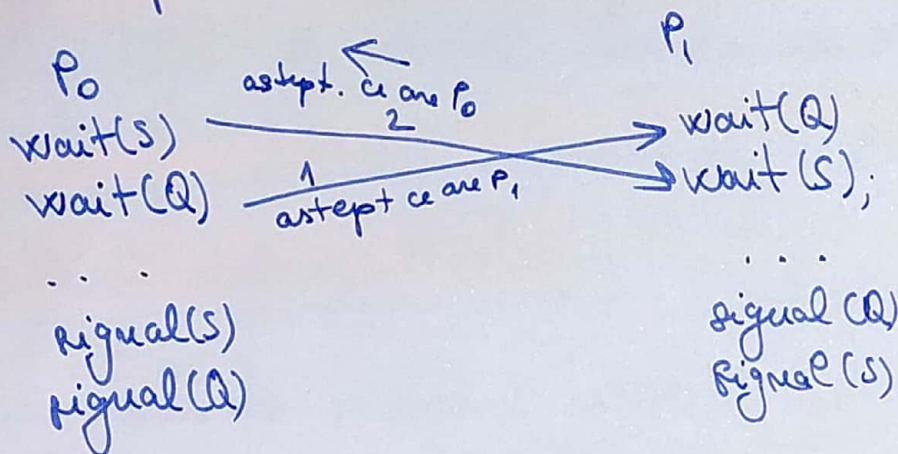 P₀
wait(S)
wait(Q)
. . .
signal(S)
signal(Q)
aștept. ce are P₀
2
1
aștept ce are P₁
P₁
wait(Q)
wait(S);
. . . .
signal(Q)
signal(S)